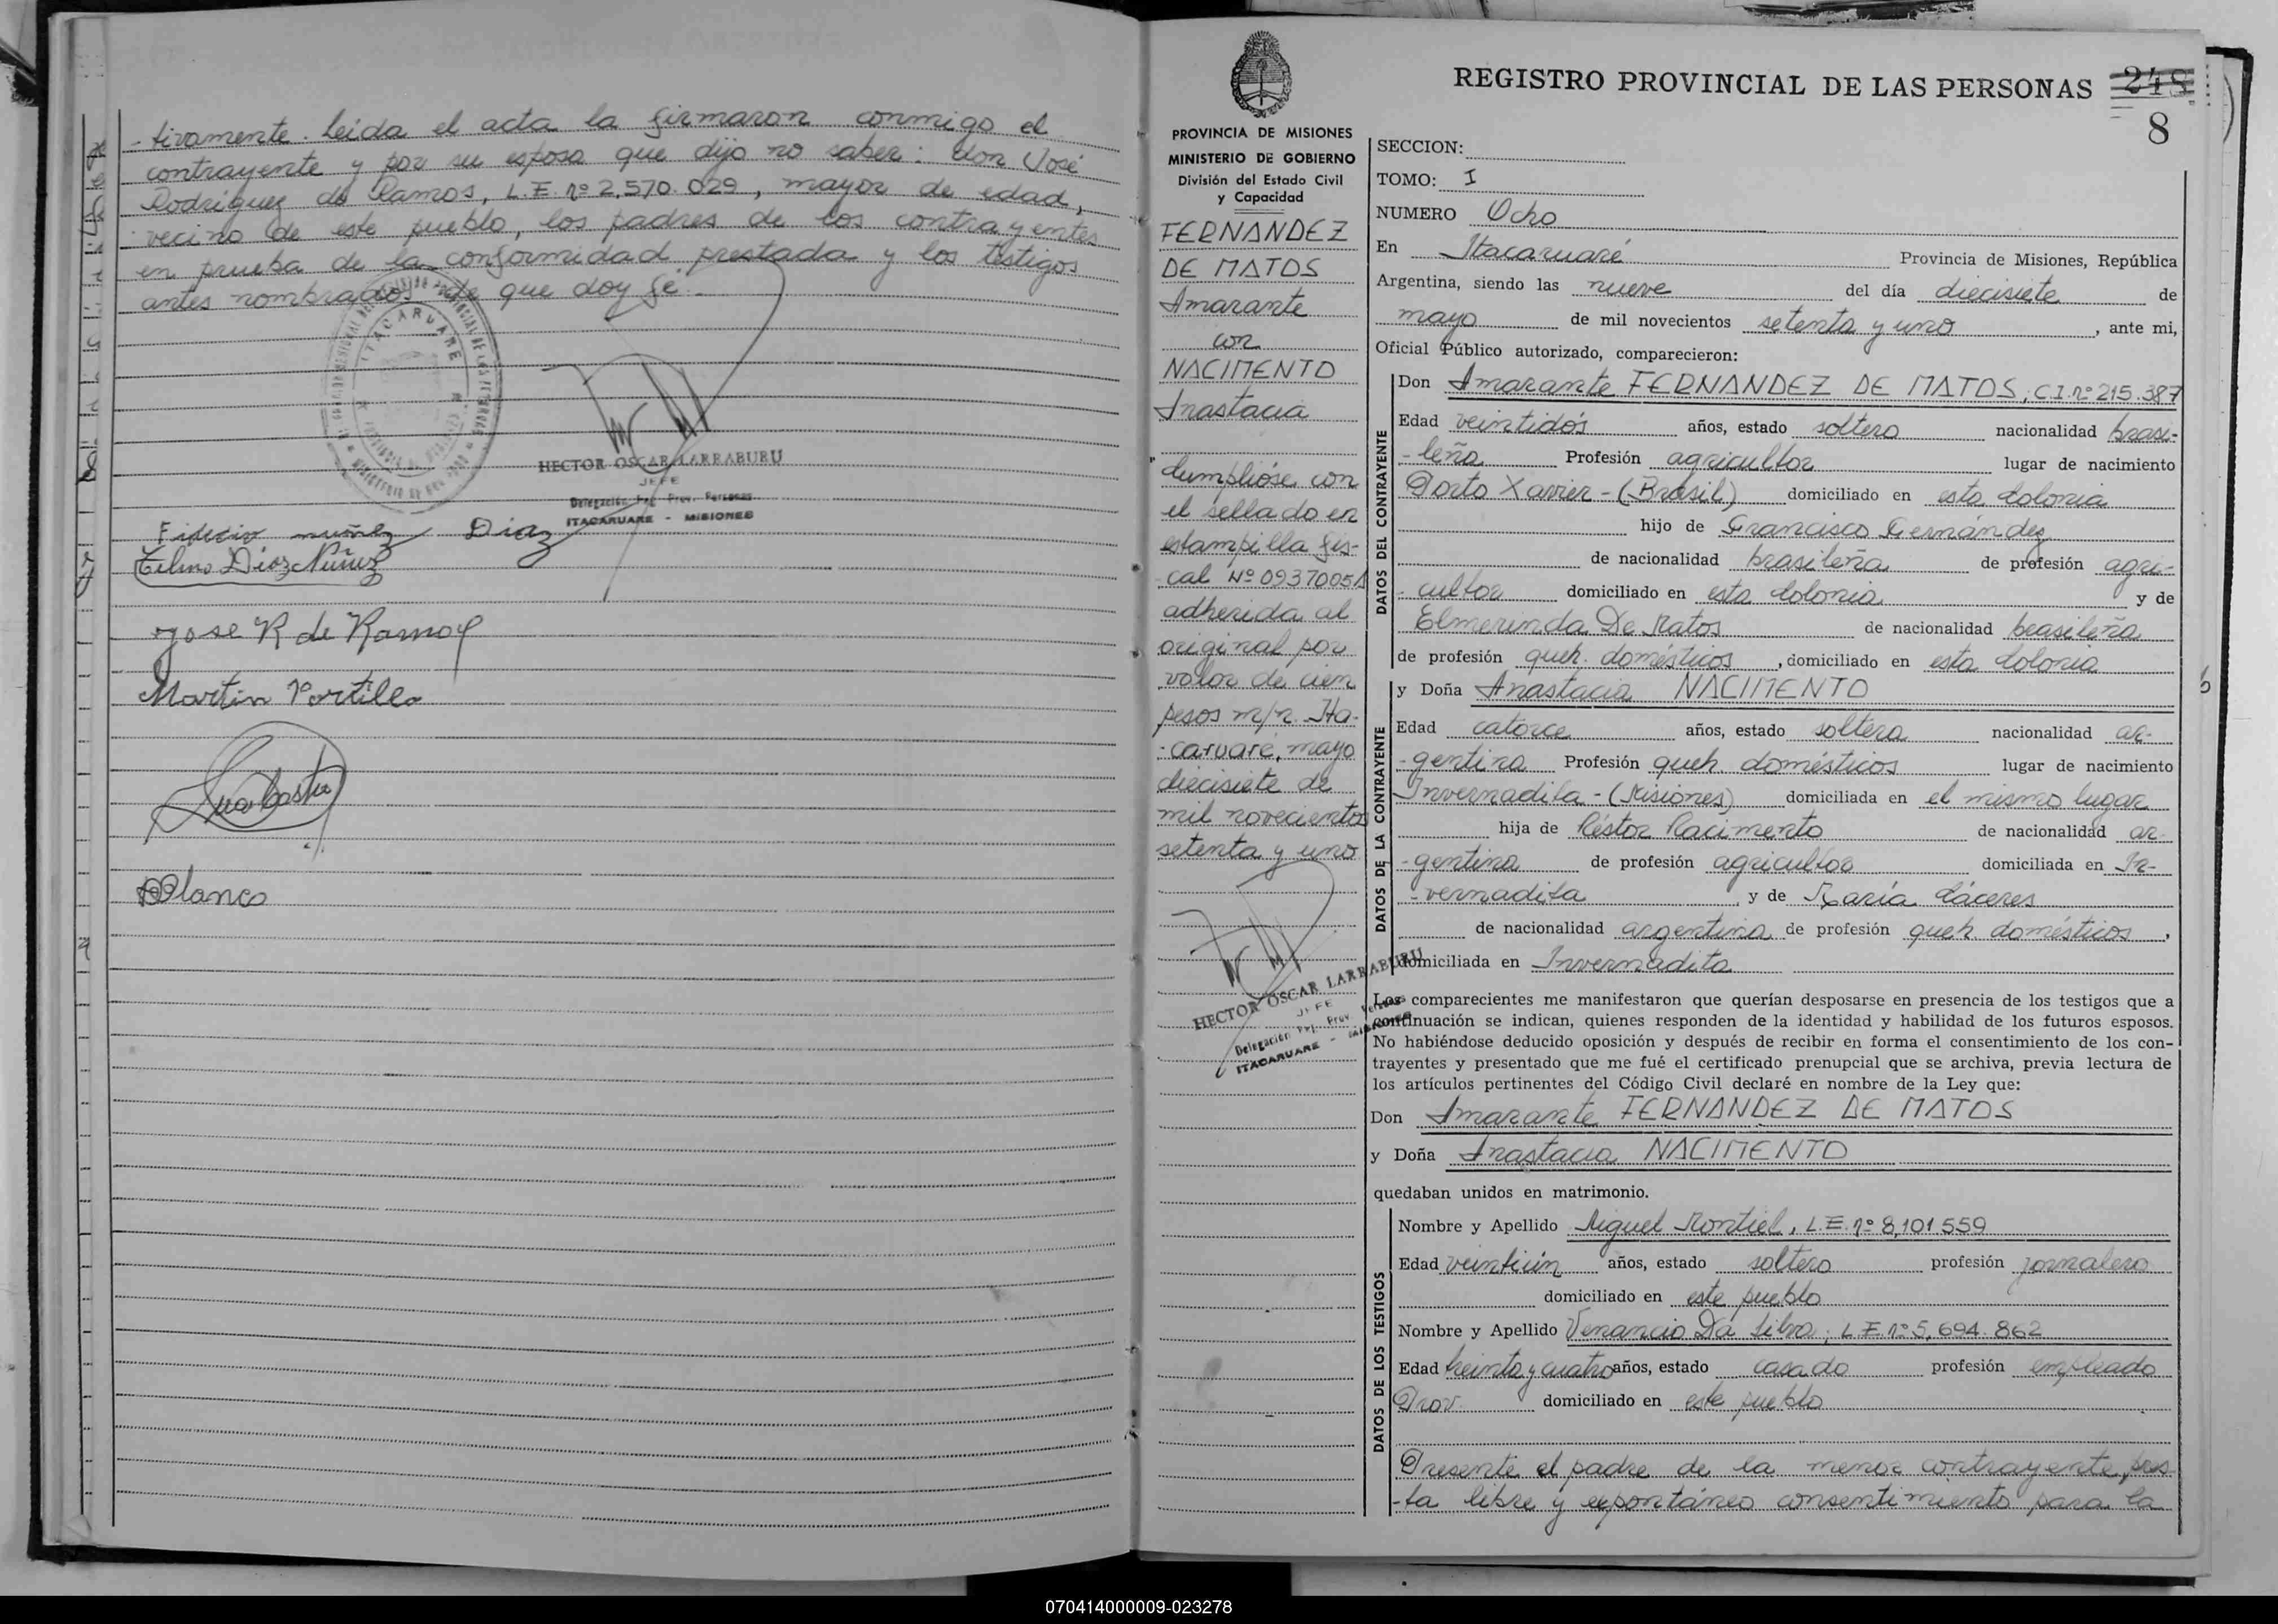 -tivamente. Leída el acta la firmaron conmigo el
contrayente y por su esposa que dijo no saber: don José
Rodríguez de Ramos, L.E. nº 2.570.029, mayor de edad,
vecino de este pueblo, los padres de los contrayentes
en prueba de la conformidad prestada y los testigos
antes nombrados de que doy fé.-
ITACARUARE
HECTOR OSCAR LARRABURU
JEFE
Delegación Reg. Prov. Personas
ITACARUARE - MISIONES
Fidecio nuñez Diaz
Telmo Díaz Núñez
Jose R de Ramos
Martin Portillo
Blanco
REGISTRO PROVINCIAL DE LAS PERSONAS 248
8
PROVINCIA DE MISIONES
MINISTERIO DE GOBIERNO
División del Estado Civil
y Capacidad
FERNANDEZ
DE MATOS
Amarante
con
NACIMENTO
Anastacia
Cumplióse con
el sellado en
estampilla fis-
cal Nº 0937005A
adherida al
original por
valor de cien
pesos m/n. Ita-
-caruaré, mayo
diecisiete de
mil novecientos
setenta y uno
HECTOR OSCAR LARRABURU
JEFE
Delegación Reg. Prov. Personas
ITACARUARE - MISIONES
SECCION:
TOMO: I
NUMERO Ocho
En Itacaruaré Provincia de Misiones, República
Argentina, siendo las nueve del día diecisiete de
mayo de mil novecientos setenta y uno, ante mi,
Oficial Público autorizado, comparecieron:
DATOS DEL CONTRAYENTE
Don Amarante FERNANDEZ DE MATOS, C.I. nº 215.387
Edad veintidós años, estado soltero nacionalidad brasi-
-leña Profesión agricultor lugar de nacimiento
Porto Xavier-(Brasil) domiciliado en esta Colonia
hijo de Francisco Fernández
de nacionalidad brasileña de profesión agri-
-cultor domiciliado en esta Colonia y de
Elmerinda De Matos de nacionalidad brasileña
de profesión queh. domésticos, domiciliado en esta Colonia
DATOS DE LA CONTRAYENTE
y Doña Anastacia NACIMENTO
Edad catorce años, estado soltera nacionalidad ar-
-gentina Profesión queh. domésticos lugar de nacimiento
Invernadita-(Misiones) domiciliada en el mismo lugar
hija de Néstor Nacimento de nacionalidad ar-
-gentina de profesión agricultor domiciliada en In-
-vernadita y de María Cáceres
de nacionalidad argentina de profesión queh. domésticos,
domiciliada en Invernadita
Los comparecientes me manifestaron que querían desposarse en presencia de los testigos que a
continuación se indican, quienes responden de la identidad y habilidad de los futuros esposos.
No habiéndose deducido oposición y después de recibir en forma el consentimiento de los con-
trayentes y presentado que me fué el certificado prenupcial que se archiva, previa lectura de
los artículos pertinentes del Código Civil declaré en nombre de la Ley que:
Don Amarante FERNANDEZ DE MATOS
y Doña Anastacia NACIMENTO
quedaban unidos en matrimonio.
DATOS DE LOS TESTIGOS
Nombre y Apellido Miguel Montiel, L.E. nº 8,101.559
Edad veintiún años, estado soltero profesión jornalero
domiciliado en este pueblo
Nombre y Apellido Venancio Da Silva, L.E. nº 5,694.862
Edad treinta y cuatro años, estado casado profesión empleado
Prov. domiciliado en este pueblo
Presente el padre de la menor contrayente, pres-
-ta libre y expontáneo consentimiento para la
070414000009-023278